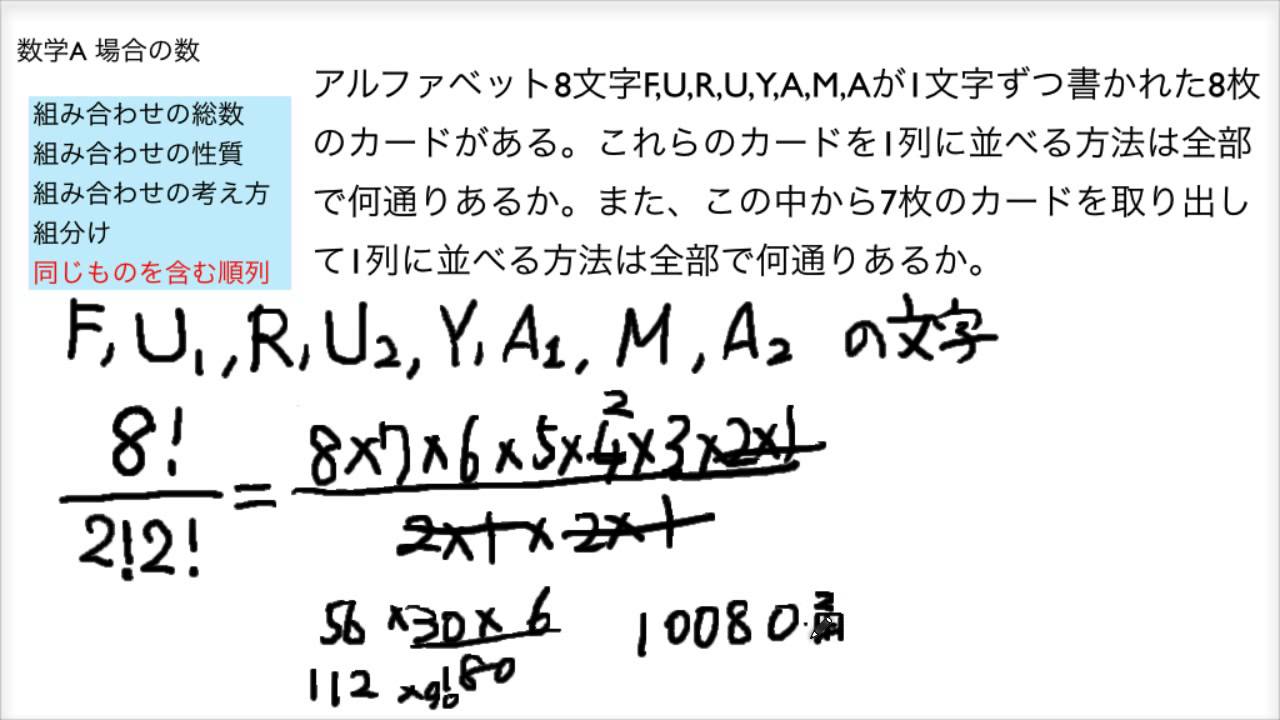 数学A 場合の数
組み合わせの総数
組み合わせの性質
組み合わせの考え方
組分け
同じものを含む順列
アルファベット8文字F,U,R,U,Y,A,M,Aが1文字ずつ書かれた8枚
のカードがある。これらのカードを1列に並べる方法は全部
で何通りあるか。また、この中から7枚のカードを取り出し
て1列に並べる方法は全部で何通りあるか。
F, U₁, R, U₂, Y, A₁, M, A₂ の文字
8!
2!2!
=
2
8×7×6×5×4×3×2×1
2×1×2×1
56×30×6
112×90
180
10080